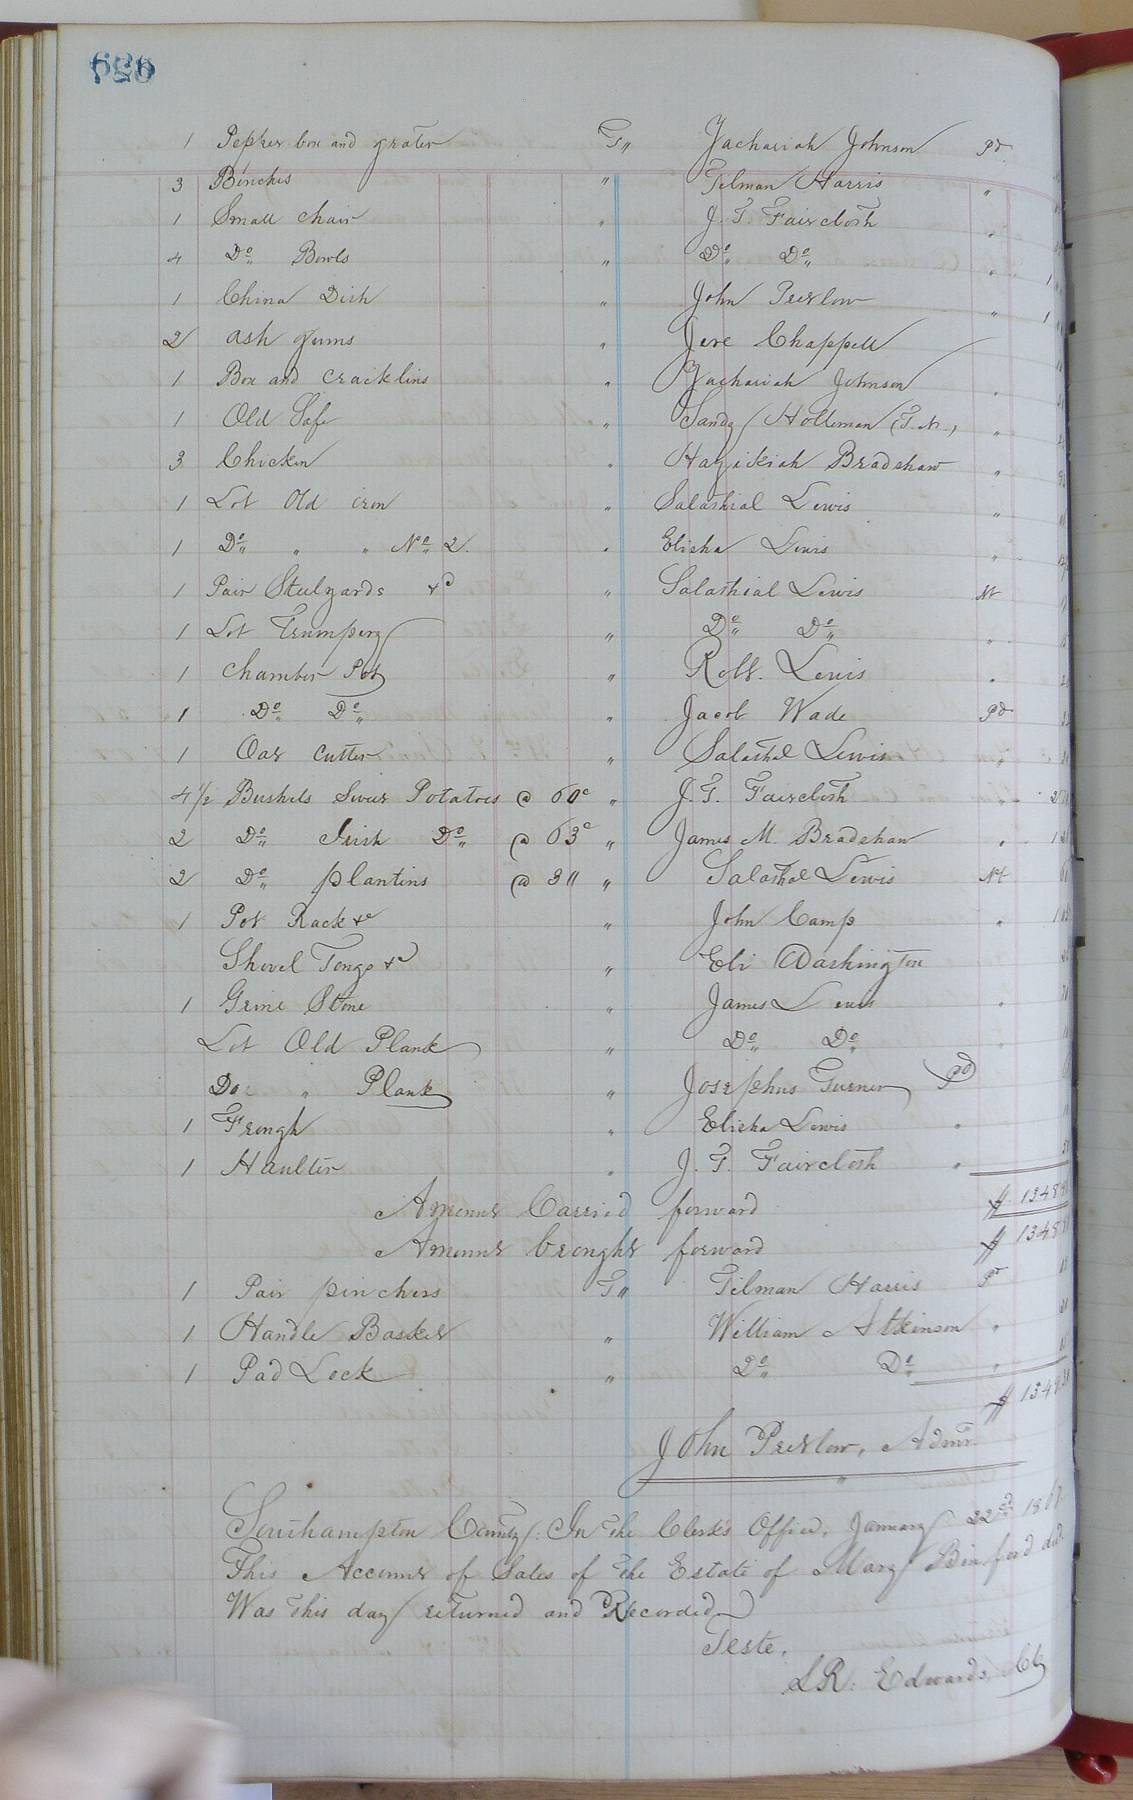 656
1 Pepper box and grater To,, Zachariah Johnson Pd
3 Benches " Tilman Harris "
1 Small chair " J. T. Faircloth "
4 Do,, Bowls " Do,, Do,, " 1
1 China Dish " John Pretlow " 1
2 ash gums " Jere Chappell
1 Box and cracklins " Zachariah Johnson "
1 Old Safe " Sandy Holleman (F.N.) "
3 Chicken " Hazikiah Bradshaw "
1 Lot Old iron " Salathial Lewis "
1 Do,, " " No,, 2. " Elisha Lewis "
1 Pair Steelyards &c " Salathial Lewis Nt
1 Lot Trumpery " Do,, Do,, "
1 Chamber Pot " Robt. Lewis "
1 Do,, Do,, " Jacob Wade Pd
1 Oat Cutter " Salathal Lewis "
4 1/2 Bushels Sweet Potatoes @ 60c " J. T. Faircloth "
2 Do,, Irish Do,, @ 63c " James M. Bradshaw "
2 Do,, plantins @ 3 " Salathal Lewis Nt
1 Pot Rack &c " John Camp "
Shovel Tongs &c " Eli Washington
1 Grine Stone " James Lewis "
Lot Old Plank " Do,, Do,,
Do " Plank " Josephus Turner Pd
1 Trough " Elisha Lewis "
1 Haulter " J. T. Faircloth "
Amount Carried forward $ 1348
Amount brought forward $ 1348
1 Pair pinchers To,, Tilman Harris Pd
1 Handle Basket " William Atkinson "
1 Pad Lock " Do,, Do,, "
$ 134
John Pretlow, Admr.
Southampton County: In the Clerk's Office, January 22nd 186
This Account of Sales of the Estate of Mary Binford decd.
Was this day returned and Recorded
Teste,
L R: Edwards, Clk